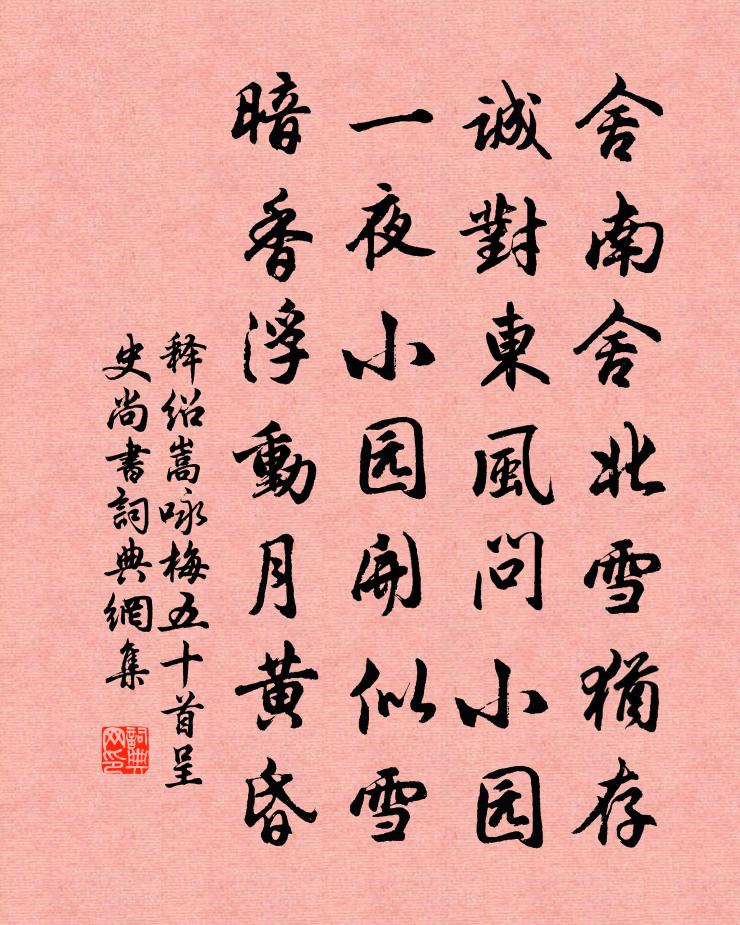 舍南舍北雪猶存
誠對東風問小园
一夜小园開似雪
暗香浮動月黄昏
释绍嵩咏梅五十首呈
史尚書詞典網集
詞典
网印